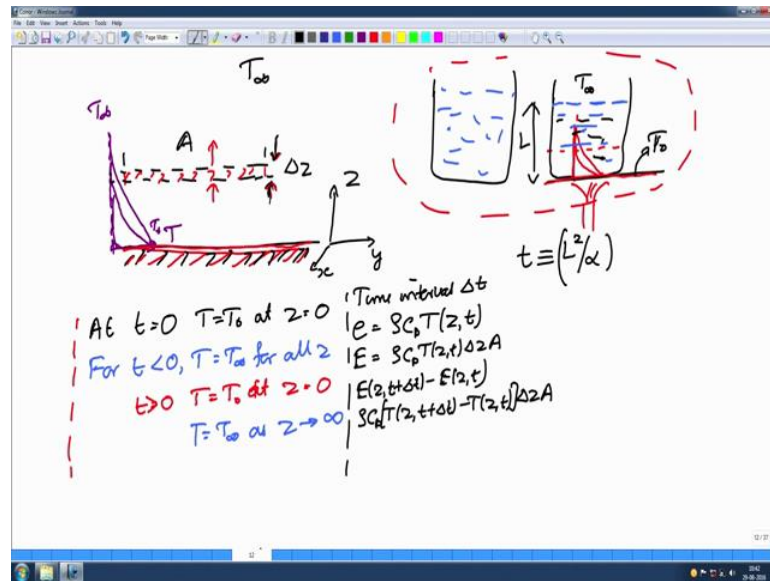 Conor - Windows Journal
File Edit View Insert Actions Tools Help
Page Width
T∞
T∞
A
Δz
T₀ T
z
y
x
T∞
L
T₀
t ≡ (L²/α)
At t=0 T=T₀ at z=0
For t<0, T=T∞ for all z
t>0 T=T₀ at z=0
T=T∞ as z→∞
Time interval Δt
e = ρCₚT(z,t)
E = ρCₚT(z,t)ΔzA
E(z,t+Δt)-E(z,t)
ρCₚ[T(z,t+Δt)-T(z,t)]ΔzA
12/37
12